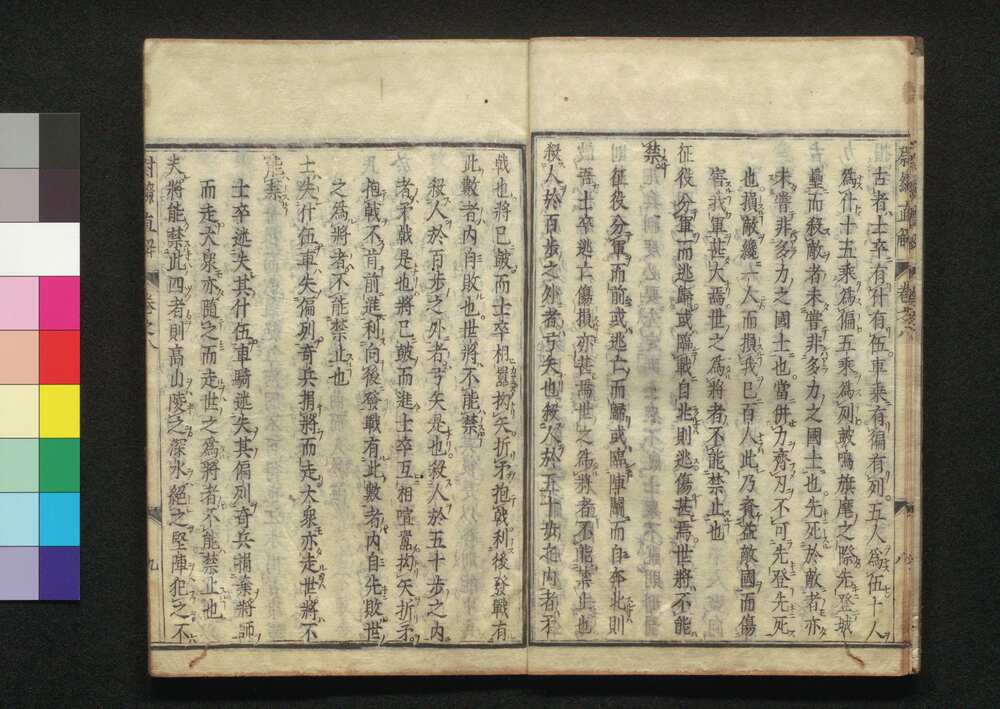 尉繚直解 卷之八 八
古者士卒有什有伍車乘有偏有列五人爲伍十人
爲什十五乘爲偏五乘爲列鼓鳴旗麾之際先登城
壘而殺敵者未嘗非多力之國士也先死於敵者亦
未嘗非多力之國士也當併力齊刃不可先登先死
也損敵纔一人而損我已百人此乃資益敵國而傷
害我軍甚大焉世之爲將者不能禁止也
征役分軍而逃歸或臨戰自北則逃傷甚焉世將不能
禁
則征役分軍而前或逃亡而歸或臨陣鬪而自奔北則
吾士卒逃亡傷損亦甚焉世之爲將者不能禁止也
殺人於百步之外者弓矢也殺人於五十步之内者矛
戟也將已鼓而士卒相囂拘矢折矛抱戟利後發戰有
此數者内自敗也世將不能禁
殺人於百步之外者弓矢是也殺人於五十步之内
者矛戟是也將已鼓而進士卒互相喧囂拘矢折矛
抱戟不肯前進利向後發戰有此數者内自先敗世
之爲將者不能禁止也
士失什伍車失偏列奇兵捐將而走大衆亦走世將不
能禁
士卒迷失其什伍車騎迷失其偏列奇兵捐棄將師
而走大衆亦隨之而走世之爲將者不能禁止也
夫將能禁此四者則高山陵之深水絶之堅陣犯之不
尉繚直解 卷之八 九